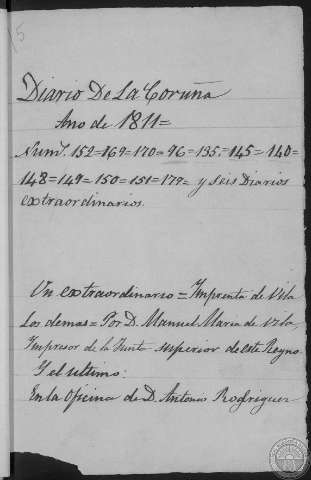 5
Diario De La Coruña
Ano de 1811=
Nums. 152=169=170=96=135.=145=140=
148=149=150=151=179= y seis Diarios
extraordinarios.
Un extraordinario = Imprenta de Vila
Los demas = Por D. Manuel Maria de Vila,
Impresor de la Junta superior de este Reyno.
Y el ultimo:
En la Oficina de D. Antonio Rodriguez